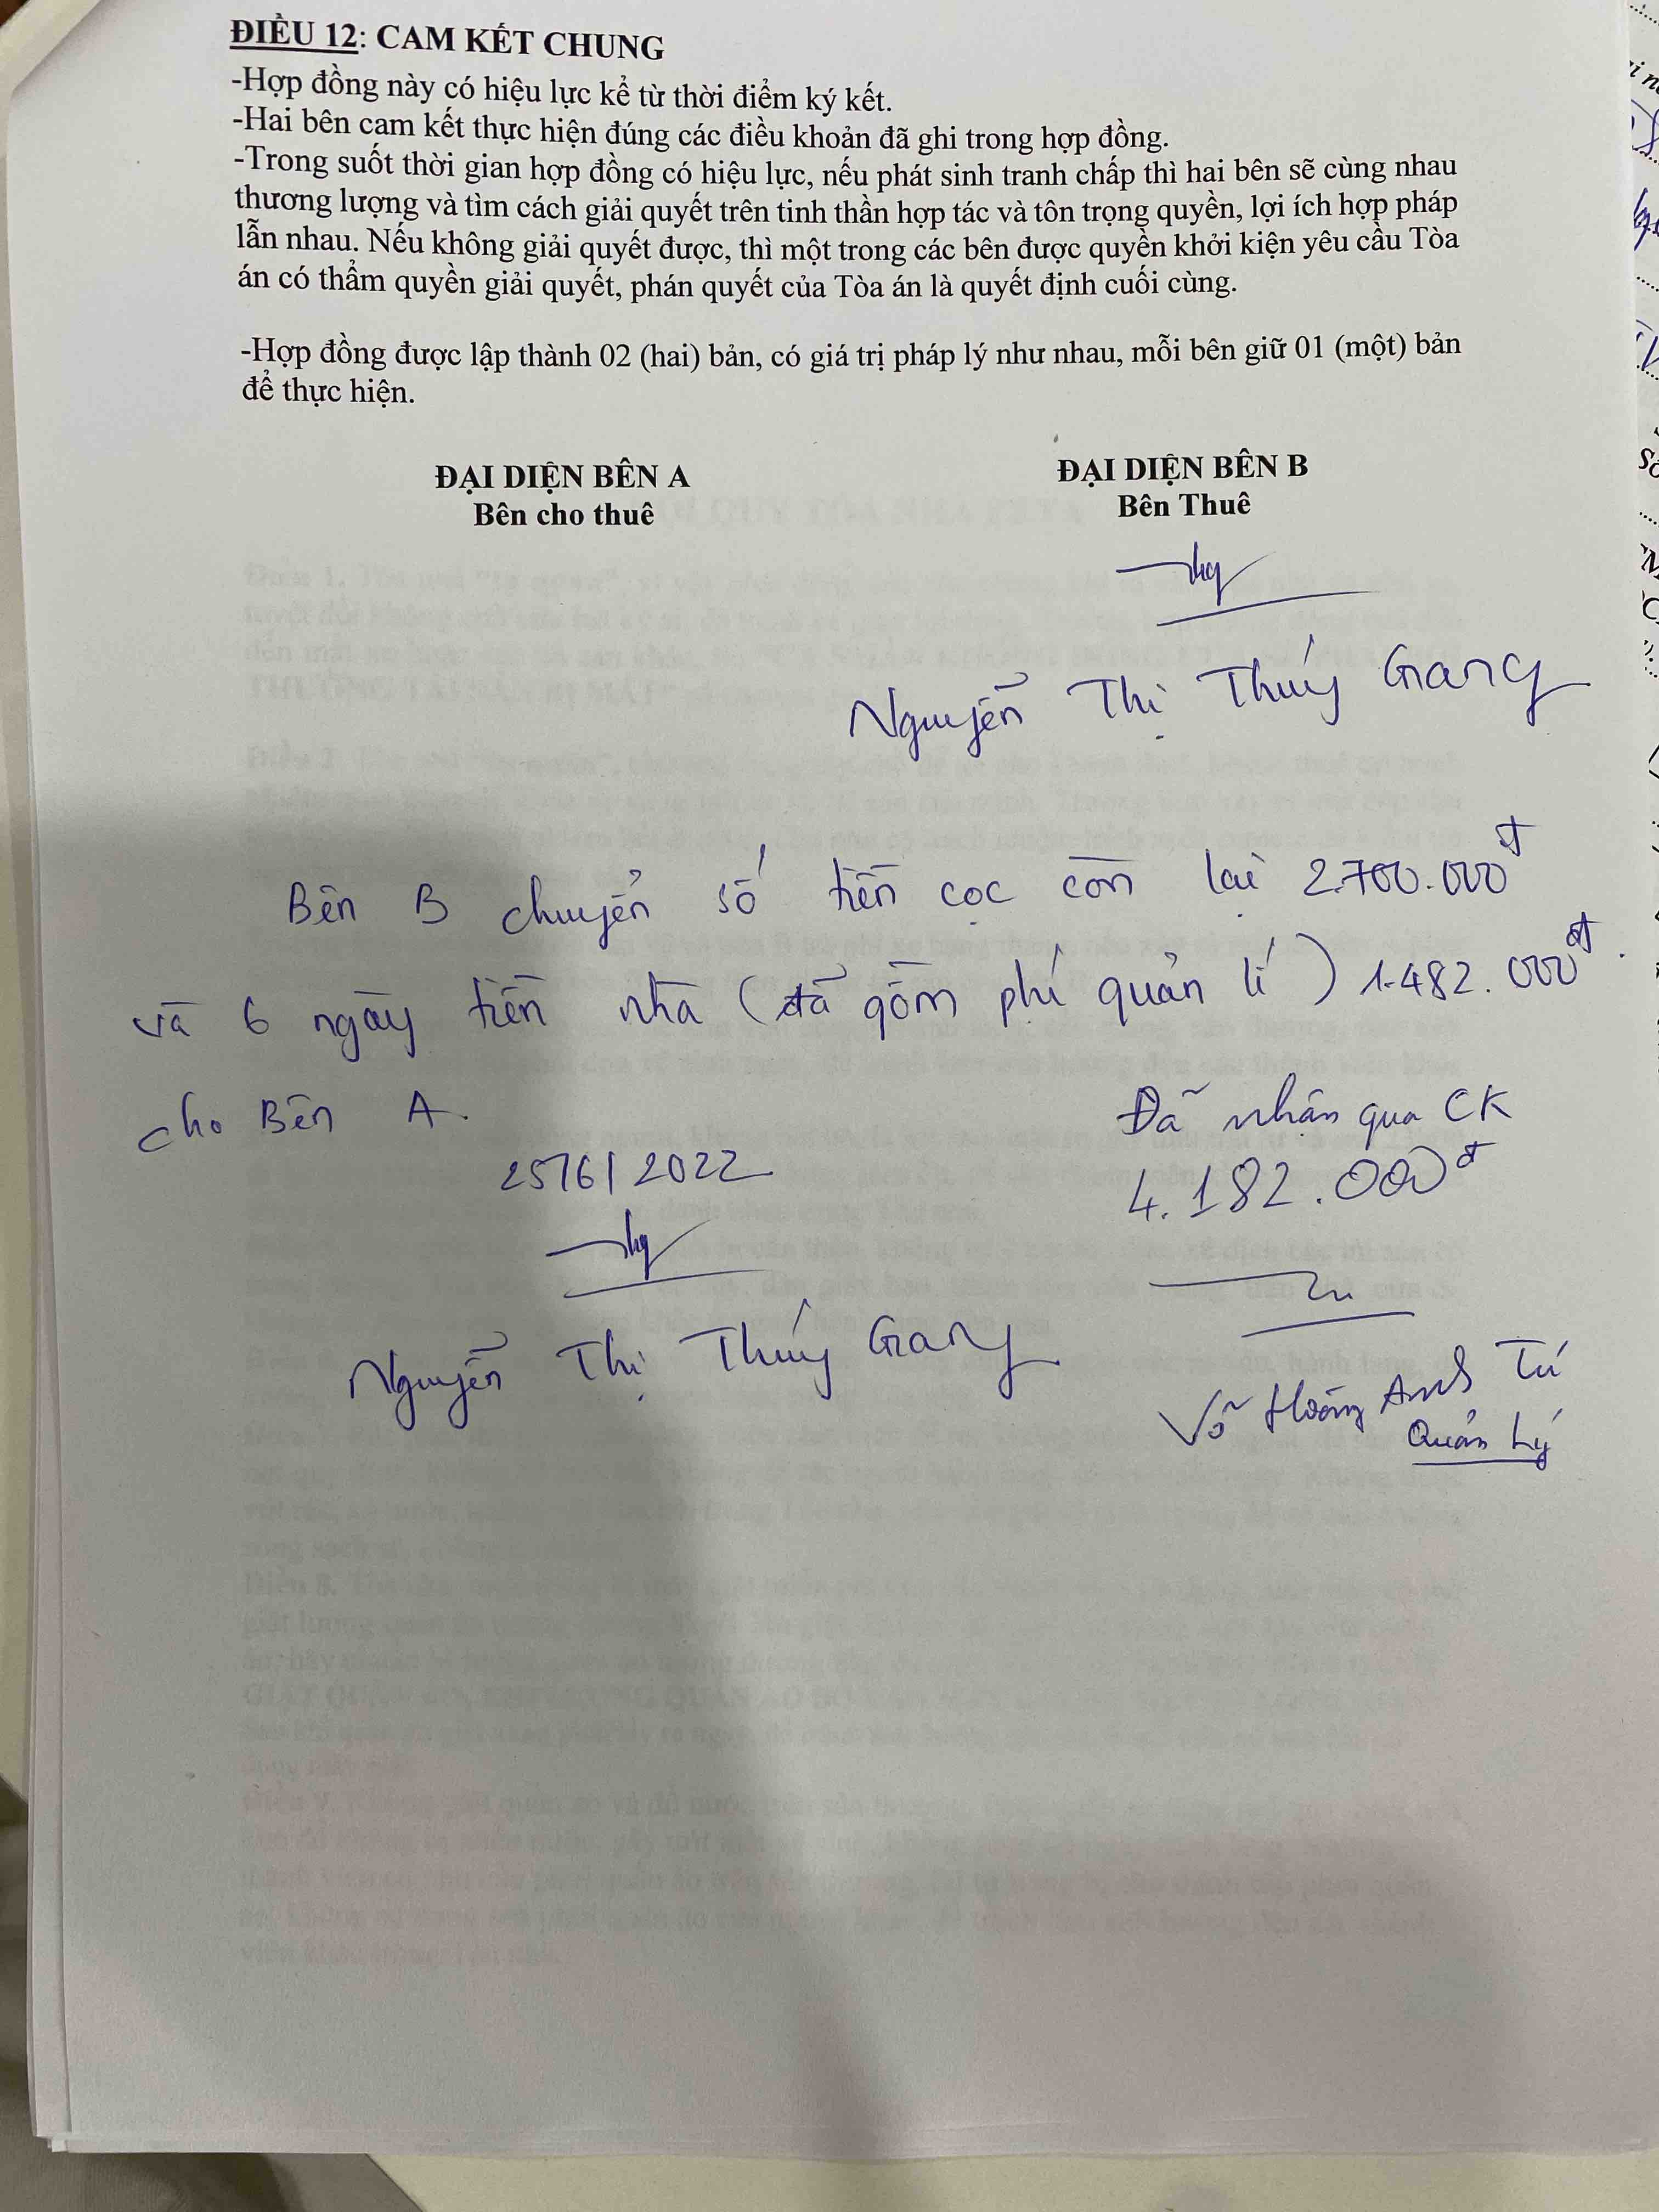 ĐIỀU 12: CAM KẾT CHUNG
-Hợp đồng này có hiệu lực kể từ thời điểm ký kết.
-Hai bên cam kết thực hiện đúng các điều khoản đã ghi trong hợp đồng.
-Trong suốt thời gian hợp đồng có hiệu lực, nếu phát sinh tranh chấp thì hai bên sẽ cùng nhau
thương lượng và tìm cách giải quyết trên tinh thần hợp tác và tôn trọng quyền, lợi ích hợp pháp
lẫn nhau. Nếu không giải quyết được, thì một trong các bên được quyền khởi kiện yêu cầu Tòa
án có thẩm quyền giải quyết, phán quyết của Tòa án là quyết định cuối cùng.
-Hợp đồng được lập thành 02 (hai) bản, có giá trị pháp lý như nhau, mỗi bên giữ 01 (một) bản
để thực hiện.
ĐẠI DIỆN BÊN A
Bên cho thuê
ĐẠI DIỆN BÊN B
Bên Thuê
Nguyễn Thị Thúy Giang
Bên B chuyển số tiền cọc còn lại 2.700.000đ
và 6 ngày tiền nhà (đã gồm phí quản lí) 1.482.000đ.
cho Bên A.
25/6/2022
Nguyễn Thị Thúy Giang
Đã nhận qua CK
4.182.000đ
Võ Hoàng Anh Tú
Quản Lý